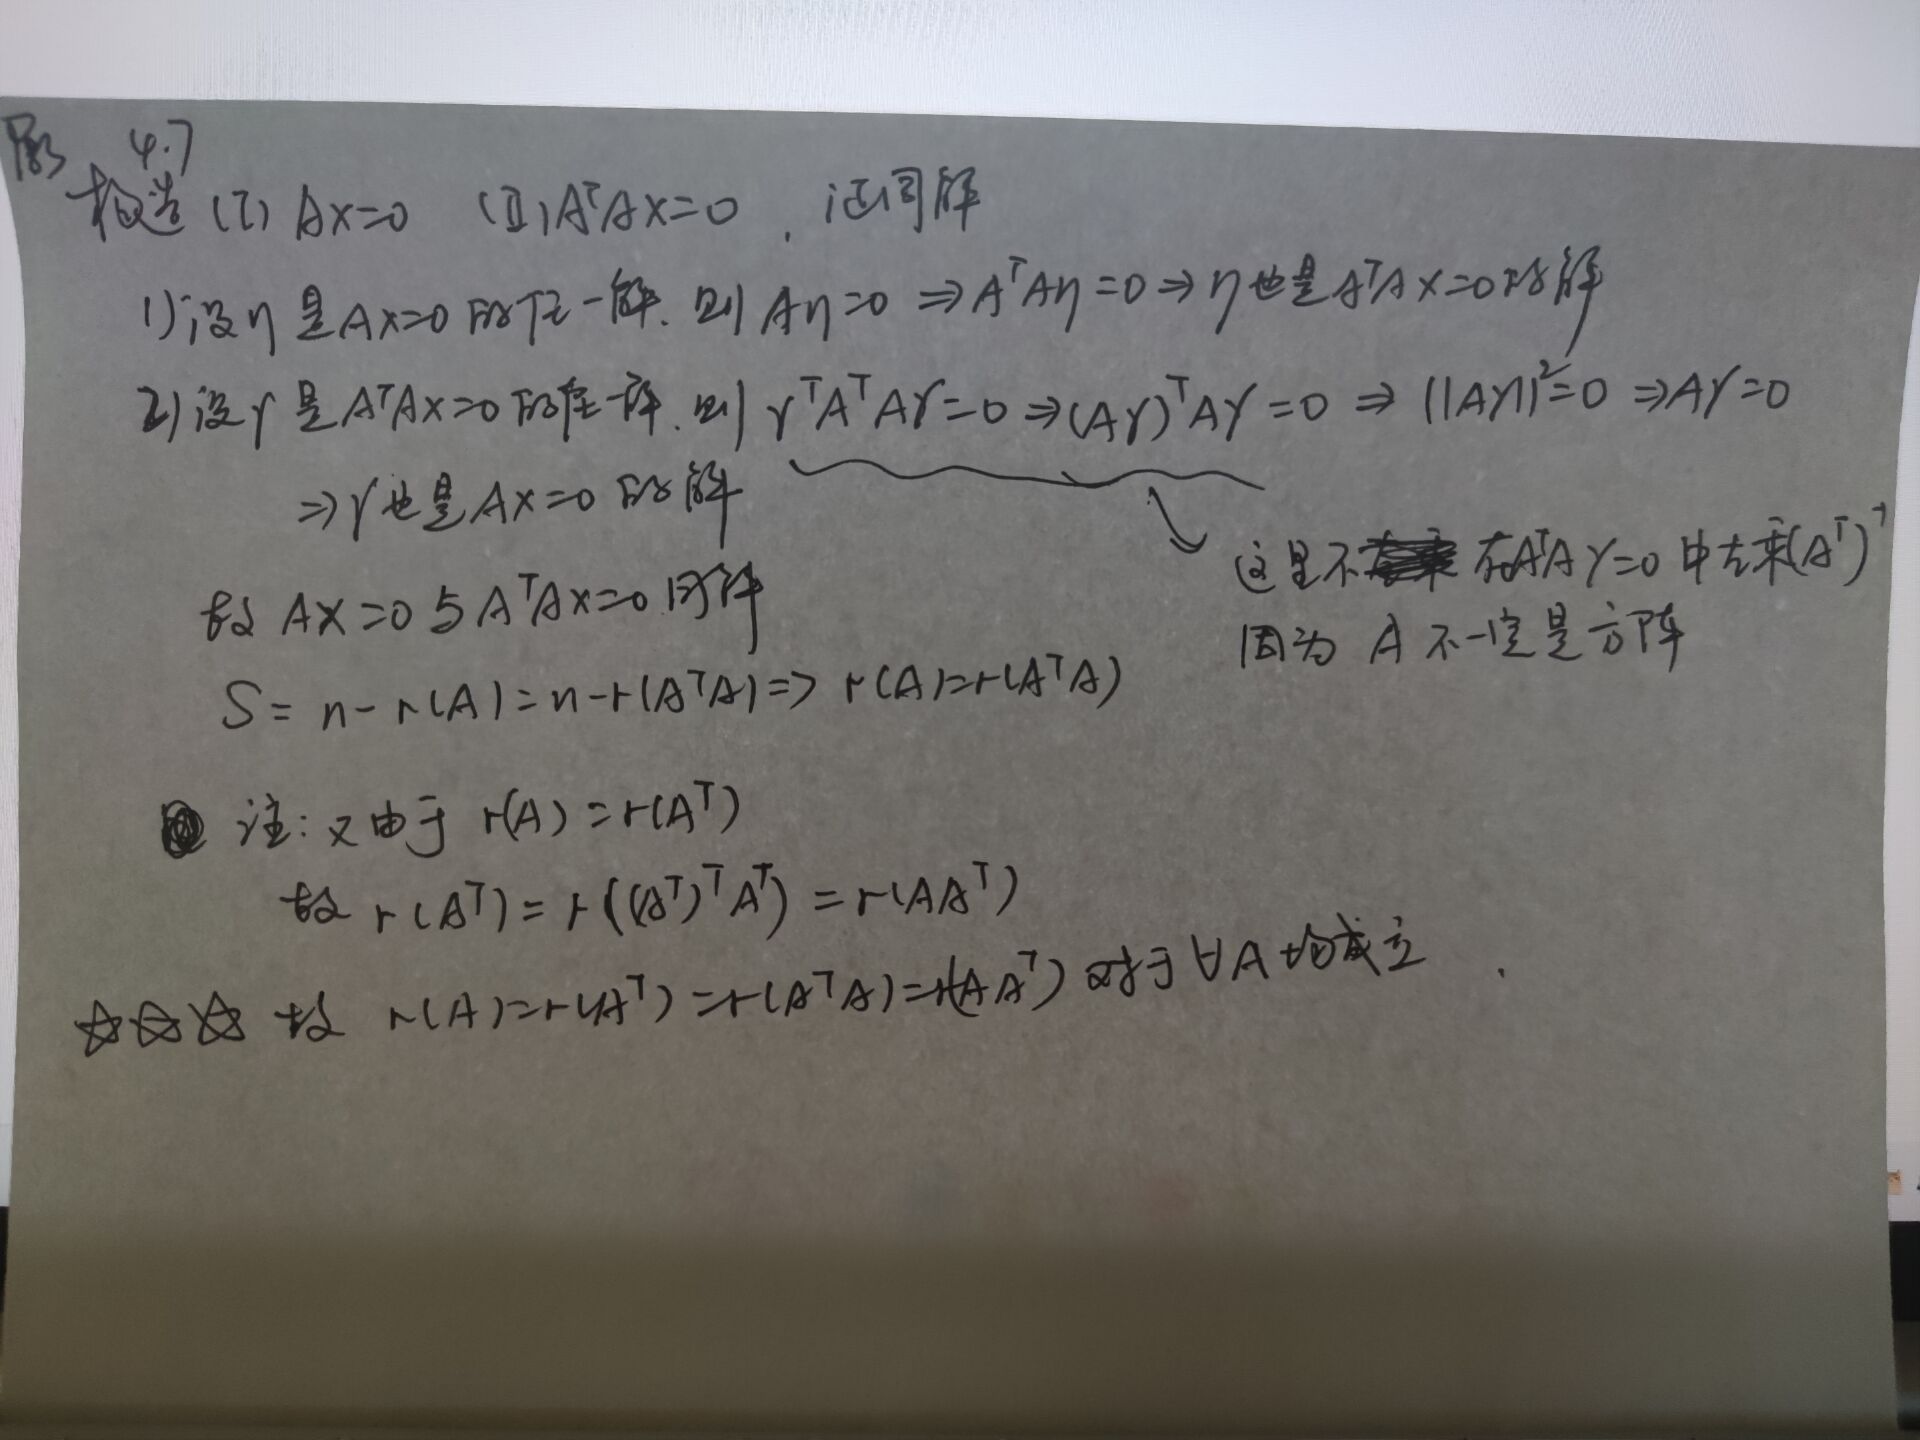 例 4.7
构造 (I) AX=0 (II) AᵀAX=0，证同解
1) 设η是AX=0的任一解，则 Aη=0 ⇒ AᵀAη=0 ⇒ η也是AᵀAX=0的解
2) 设γ是AᵀAX=0的任一解，则 γᵀAᵀAγ=0 ⇒ (Aγ)ᵀAγ=0 ⇒ ||Aγ||²=0 ⇒ Aγ=0
⇒ γ也是AX=0的解
这里不在AᵀAγ=0中左乘(Aᵀ)⁻¹
因为A不一定是方阵
故 AX=0与AᵀAX=0同解
S=n-r(A)=n-r(AᵀA) ⇒ r(A)=r(AᵀA)
注：又由于 r(A)=r(Aᵀ)
故 r(Aᵀ)=r((Aᵀ)ᵀAᵀ)=r(AAᵀ)
☆☆☆ 故 r(A)=r(Aᵀ)=r(AᵀA)=r(AAᵀ) 对于∀A均成立.